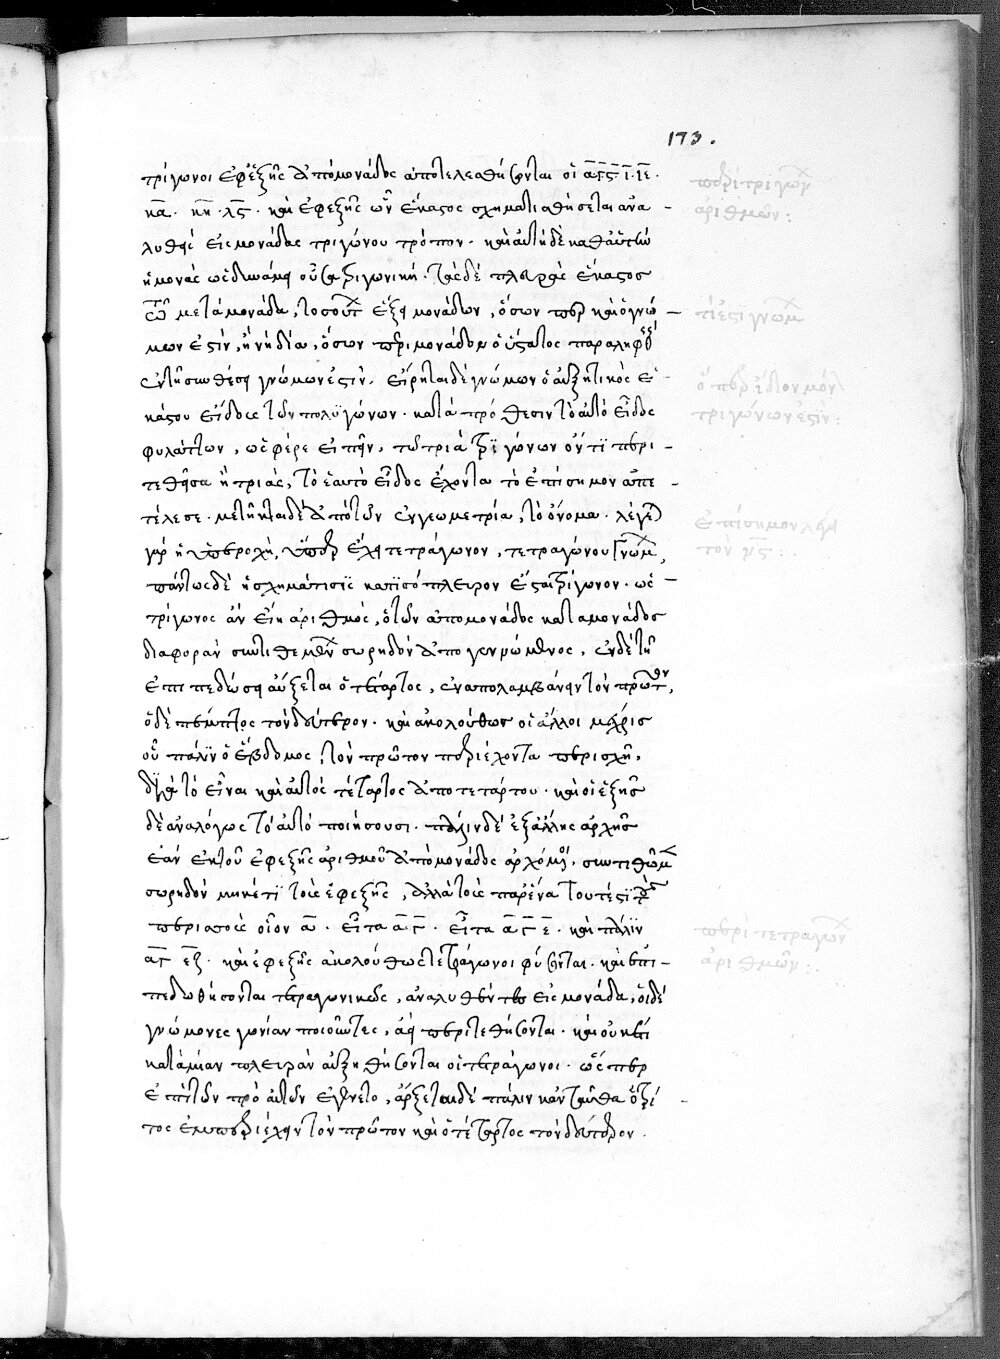 173.
τρίγωνοι ἐφεξῆς ἀπὸ μονάδος ἀποτελεσθήσονται οἱ α γ ς ι ιε.
κα. κη. λς. καὶ ἐφεξῆς ὧν ἕκαστος σχηματισθήσεται ἀνα
λυθεὶς εἰς μονάδας τριγώνου τρόπον. καὶ αὐτὴ δὲ καθ' αὑτὴν
ἡ μονὰς ὡς δυνάμει οὖσα τριγωνική. τὰς δὲ πλευρὰς ἕκαστος
τῶν μετὰ μονάδα, τοσούτων ἕξει μονάδων, ὅσων περ καὶ ὁ γνώ
μων ἐστίν, ὅσων περ μονάδων ὁ ὕστατος παραληφθεὶς
ἐν τῇ συνθέσει γνώμων ἐστίν. εἴρηται δὲ γνώμων ὁ αὐξητικὸς ἑ
κάστου εἴδους τῶν πολυγώνων. κατὰ πρόσθεσιν τὸ αὐτὸ εἶδος
φυλάττων, ὡς φέρε εἰπεῖν, τῷ τρία τριγώνων ὄντι περι
τεθεῖσα ἡ τριὰς, τὸ ἑαυτὸ εἶδος ἔχοντα τὸ ἐπίσημον ἀπε
τέλεσε. μετῆκται δὲ ἀπὸ τῶν ἐν γεωμετρία, τὸ ὄνομα. λέγεται
γὰρ ἡ ὑπεροχὴ, ὑπὲρ ἔχει τετράγωνον, τετραγώνου γνώμων,
πάντως δὲ ἡ σχημάτισις κατ' ἰσόπλευρον ἔσται τρίγωνον. ὡς
τρίγωνος ἂν εἴη ἀριθμὸς, ὁ τῶν ἀπὸ μονάδος κατὰ μονάδος
διαφορὰν συντιθεμένων σωρηδὸν ἀπογεννώμενος, ἐν δὲ τῇ
ἐπιπεδώσει αὔξεται ὁ τέταρτος, ἐναπολαμβάνειν τὸν πρῶτον,
ὁ δὲ πέμπτος τὸν δεύτερον. καὶ ἀκολούθως οἱ ἄλλοι μέχρις
οὗ πάλιν ὁ ἕβδομος, τὸν πρῶτον περιέχοντα περισχῇ,
διὰ τὸ εἶναι καὶ αὐτὸς τέταρτος ἀπὸ τετάρτου. καὶ οἱ ἑξῆς
δὲ ἀναλόγως τὸ αὐτὸ ποιήσουσι. πάλιν δὲ ἐξ ἄλλης ἀρχῆς
ἐὰν ἐκ τοῦ ἐφεξῆς ἀριθμοῦ ἀπὸ μονάδος ἀρχόμενοι, συντιθῶμεν
σωρηδὸν μηκέτι τοὺς ἐφεξῆς, ἀλλὰ τοὺς παρ' ἕνα τουτέστι τοὺς
περισσοὺς οἷον α. εἶτα α. γ. εἶτα α γ ε. καὶ πάλιν
α γ ε ζ. καὶ ἐφεξῆς ἀκολούθως τετράγωνοι φύσονται. καὶ ἐπι
πεδωθήσονται τετραγωνικῶς, ἀναλυθέντες εἰς μονάδα, οἱ δὲ
γνώμονες γωνίαν ποιοῦντες, ἀεὶ περιτεθήσονται. καὶ οὐκέτι
κατὰ μίαν πλευρὰν αὐξηθήσονται οἱ τετράγωνοι. ὥσπερ
ἐπὶ τῶν πρὸ αὐτῶν ἐγένετο, ἄρξεται δὲ πάλιν κἀνταῦθα ὁ τρί
τος ἐμπεριέχειν τὸν πρῶτον καὶ ὁ τέταρτος τὸν δεύτερον.
περὶ τριγώνων
ἀριθμῶν:
τί ἐστι γνώμων
ὅπερ ἴδιον μόνων
τριγώνων ἐστίν:
ἐπίσημον λέγει
τὸν ς:
περὶ τετραγώνων
ἀριθμῶν: